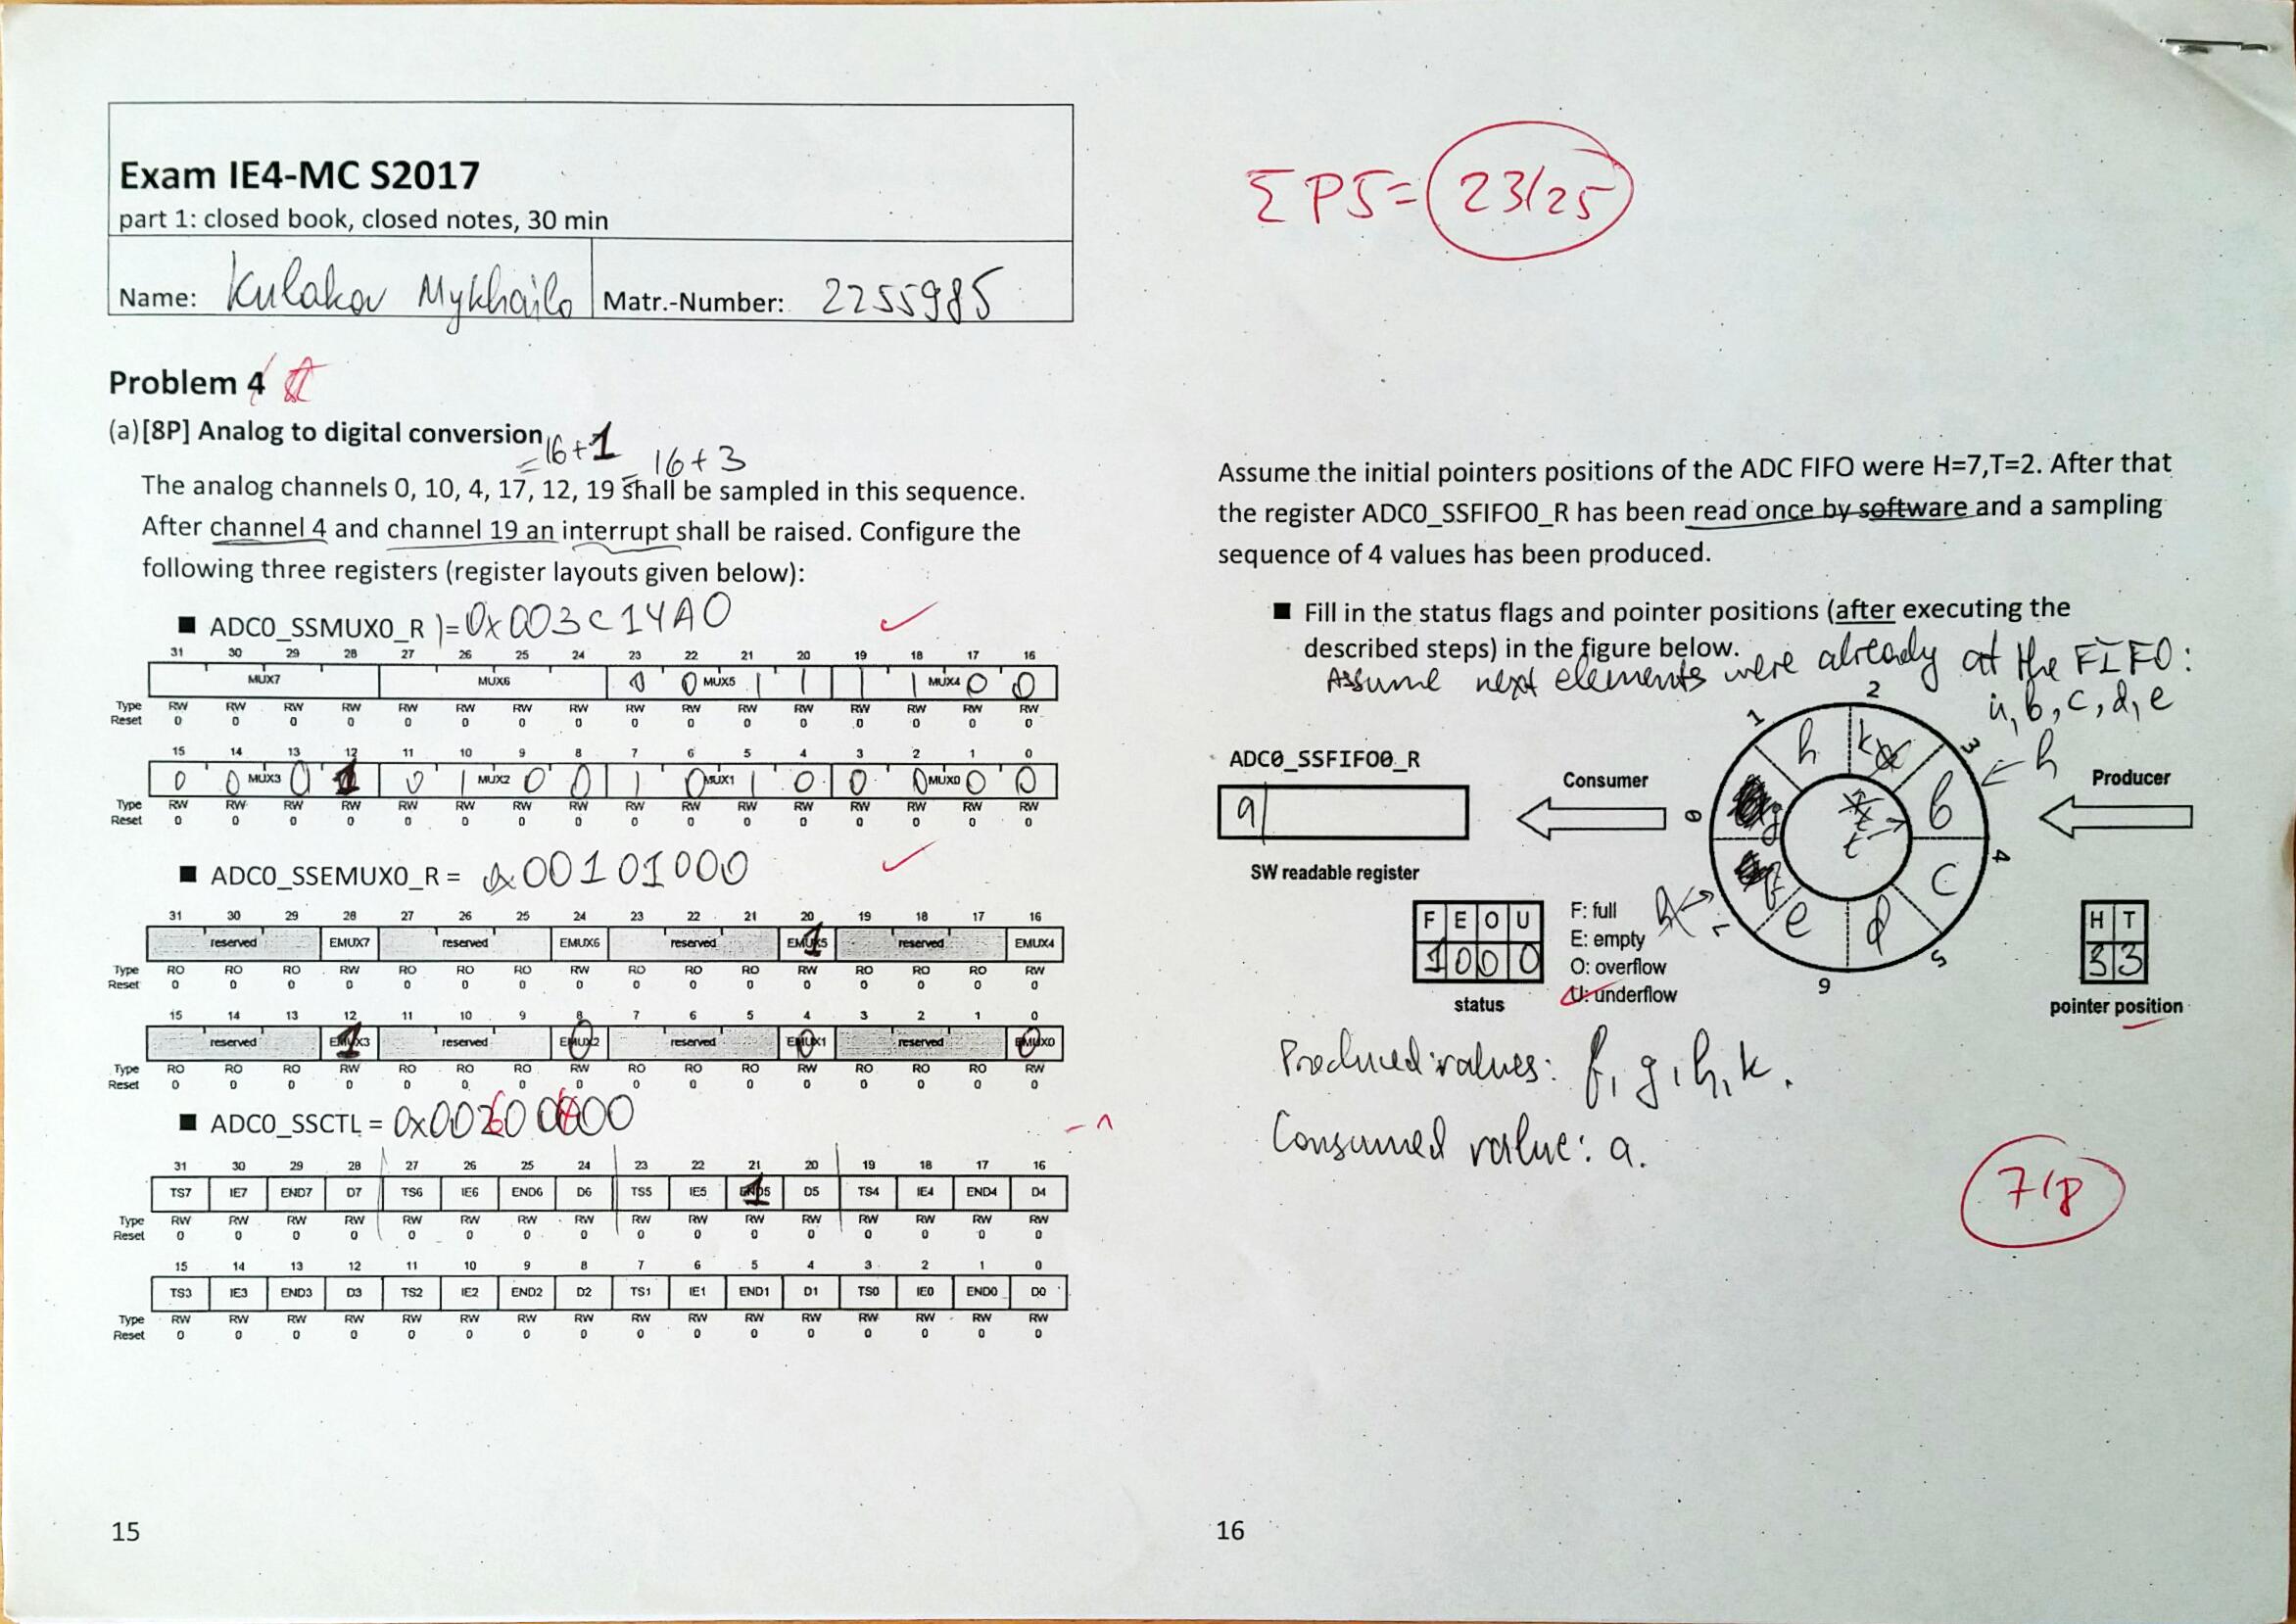 Exam IE4-MC S2017
part 1: closed book, closed notes, 30 min
Name: Kulakov Mykhailo Matr.-Number: 2255985
Problem 4
(a)[8P] Analog to digital conversion
=16+1 =16+3
The analog channels 0, 10, 4, 17, 12, 19 shall be sampled in this sequence.
After channel 4 and channel 19 an interrupt shall be raised. Configure the
following three registers (register layouts given below):
■ ADC0_SSMUX0_R )=0x003C14A0
31 30 29 28 27 26 25 24 23 22 21 20 19 18 17 16
MUX7 MUX6 0 0 MUX5 1 1 1 1 MUX4 0 0
Type RW RW RW RW RW RW RW RW RW RW RW RW RW RW RW RW
Reset 0 0 0 0 0 0 0 0 0 0 0 0 0 0 0 0
15 14 13 12 11 10 9 8 7 6 5 4 3 2 1 0
0 0 MUX3 0 1 0 1 MUX2 0 0 1 0 MUX1 1 0 0 0 MUX0 0 0
Type RW RW RW RW RW RW RW RW RW RW RW RW RW RW RW RW
Reset 0 0 0 0 0 0 0 0 0 0 0 0 0 0 0 0
■ ADC0_SSEMUX0_R = 0x00101000
31 30 29 28 27 26 25 24 23 22 21 20 19 18 17 16
reserved EMUX7 reserved EMUX6 reserved EMUX5 1 reserved EMUX4
Type RO RO RO RW RO RO RO RW RO RO RO RW RO RO RO RW
Reset 0 0 0 0 0 0 0 0 0 0 0 0 0 0 0 0
15 14 13 12 11 10 9 8 7 6 5 4 3 2 1 0
reserved EMUX3 1 reserved EMUX2 0 reserved EMUX1 0 reserved EMUX0 0
Type RO RO RO RW RO RO RO RW RO RO RO RW RO RO RO RW
Reset 0 0 0 0 0 0 0 0 0 0 0 0 0 0 0 0
■ ADC0_SSCTL = 0x00200000
6 4
-1
31 30 29 28 27 26 25 24 23 22 21 20 19 18 17 16
TS7 IE7 END7 D7 TS6 IE6 END6 D6 TS5 IE5 END5 1 D5 TS4 IE4 END4 D4
Type RW RW RW RW RW RW RW RW RW RW RW RW RW RW RW RW
Reset 0 0 0 0 0 0 0 0 0 0 0 0 0 0 0 0
15 14 13 12 11 10 9 8 7 6 5 4 3 2 1 0
TS3 IE3 END3 D3 TS2 IE2 END2 D2 TS1 IE1 END1 D1 TS0 IE0 END0 D0
Type RW RW RW RW RW RW RW RW RW RW RW RW RW RW RW RW
Reset 0 0 0 0 0 0 0 0 0 0 0 0 0 0 0 0
15
Σ P5= 23/25
Assume the initial pointers positions of the ADC FIFO were H=7,T=2. After that
the register ADC0_SSFIFO0_R has been read once by software and a sampling
sequence of 4 values has been produced.
■ Fill in the status flags and pointer positions (after executing the
described steps) in the figure below.
Assume next elements were already at the FIFO:
a, b, c, d, e
ADC0_SSFIFO0_R
a
SW readable register
Consumer
Producer
0 1 2 3 4 5 6 7
g h k b c d e f
h
t
F E O U
1 0 0 0
status
F: full
E: empty
O: overflow
U: underflow
H T
3 3
pointer position
Produced values: f, g, h, k.
Consumed value: a.
7/8
16